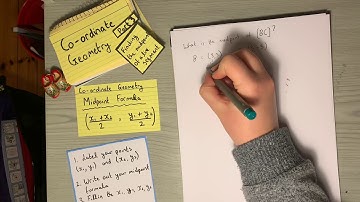 Co-ordinate
Geometry
Part 3
Finding
the midpoint
of the
segment
Co-ordinate Geometry
Midpoint Formula
(x₁ + x₂ / 2 , y₁ + y₂ / 2)
1. Label your points
(x₁, y₁) and (x₂, y₂)
2. Write out your midpoint
formula
3. Fill in the x₁, y₁, x₂, y₂
What is the midpoint of [BC]?
B = (